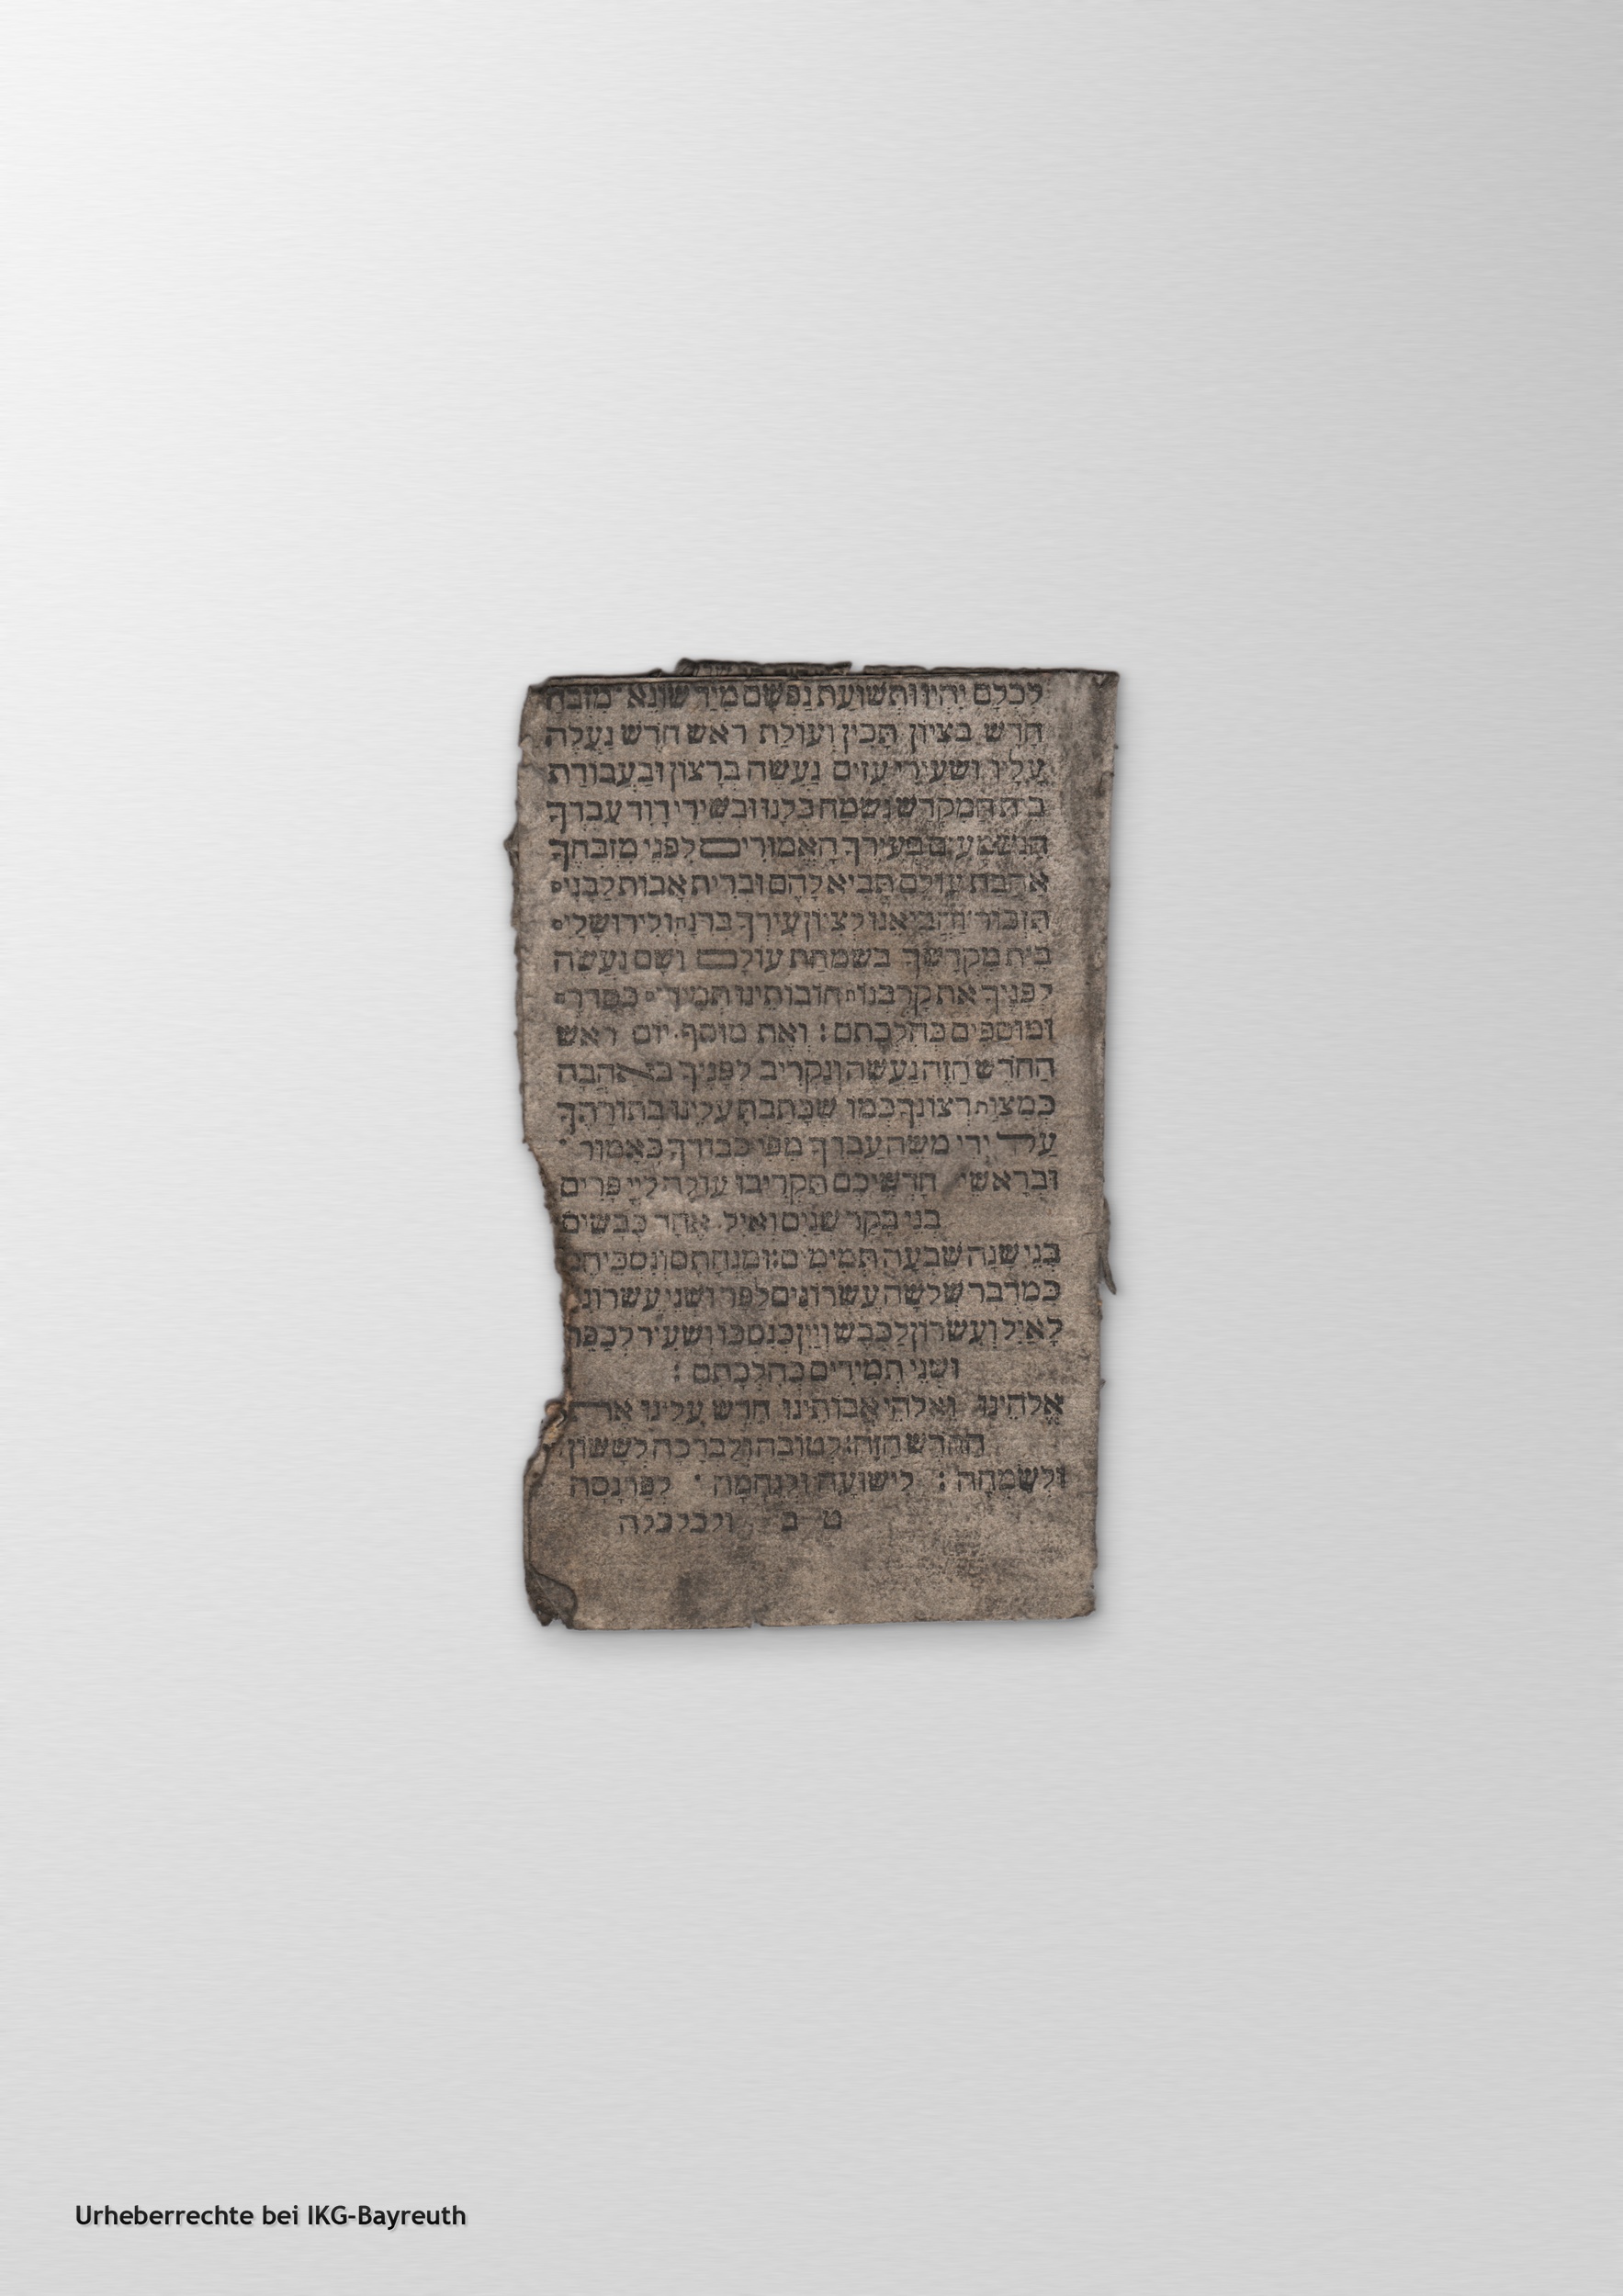 לכלם יהיו ותשועת נפשם מיד שונא מזבח
חדש בציון תכין ועולת ראש חדש נעלה
עליו ושעירי עזים נעשה ברצון ובעבודת
בית המקדש נשמח כלנו ובשירי דוד עבדך
הנשמעים בעירך האמורים לפני מזבחך
אהבת עולם תביא להם וברית אבות לבני
תזכור והביאנו לציון עירך ברנה ולירושלי
בית מקדשך בשמחת עולם ושם נעשה
לפניך את קרבנות חובותינו תמידי כסדר
ומוספים כהלכתם : ואת מוסף יום ראש
החדש הזה נעשה ונקריב לפניך באהבה
כמצות רצונך כמו שכתבת עלינו בתורתך
על ידי משה עבדך מפי כבודך כאמור
ובראשי חדשיכם תקריבו עולה ליי פרים
בני בקר שנים ואיל אחד כבשים
בני שנה שבעה תמימים : ומנחתם ונסכיהם
כמדבר שלשה עשרונים לפר ושני עשרונים
לאיל ועשרון לכבש ויין כנסכו ושעיר לכפר
ושני תמידים כהלכתם :
אלהינו ואלהי אבותינו חדש עלינו את
החדש הזה לטובה ולברכה לששון
ולשמחה : לישועה ולנחמה · לפרנסה
ט ב ולכלכלה
Urheberrechte bei IKG-Bayreuth